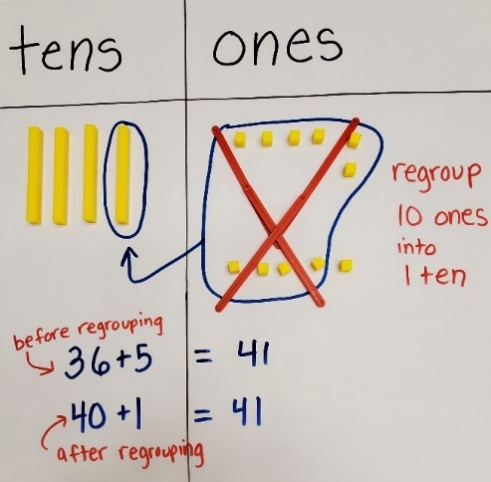 tens
ones
regroup
10 ones
into
1 ten
before regrouping
36+5 = 41
40+1 = 41
after regrouping